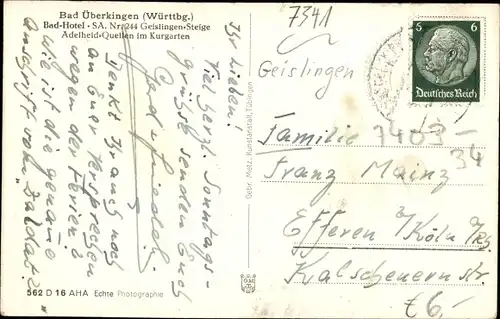 Bad Überkingen (Württbg.)
Bad-Hotel · SA. Nr. 244 Geislingen-Steige
Adelheid-Quellen im Kurgarten
7341
Geislingen
6 6
Deutsches Reich
Ihr Lieben!
Viel herzl. Sonntags-
grüße senden Euch
Denkt Ihr auch noch
an Euer Versprechen
wegen der Ferien?
Wie ist die genaue
Anschrift vom
Gebr. Metz, Kunstanstalt, Tübingen
Familie 7403 -
34
Franz Mainz
Efferen b/Köln a/Rh
Kalscheurenstr
€ 6,-
562 D 16 AHA Echte Photographie